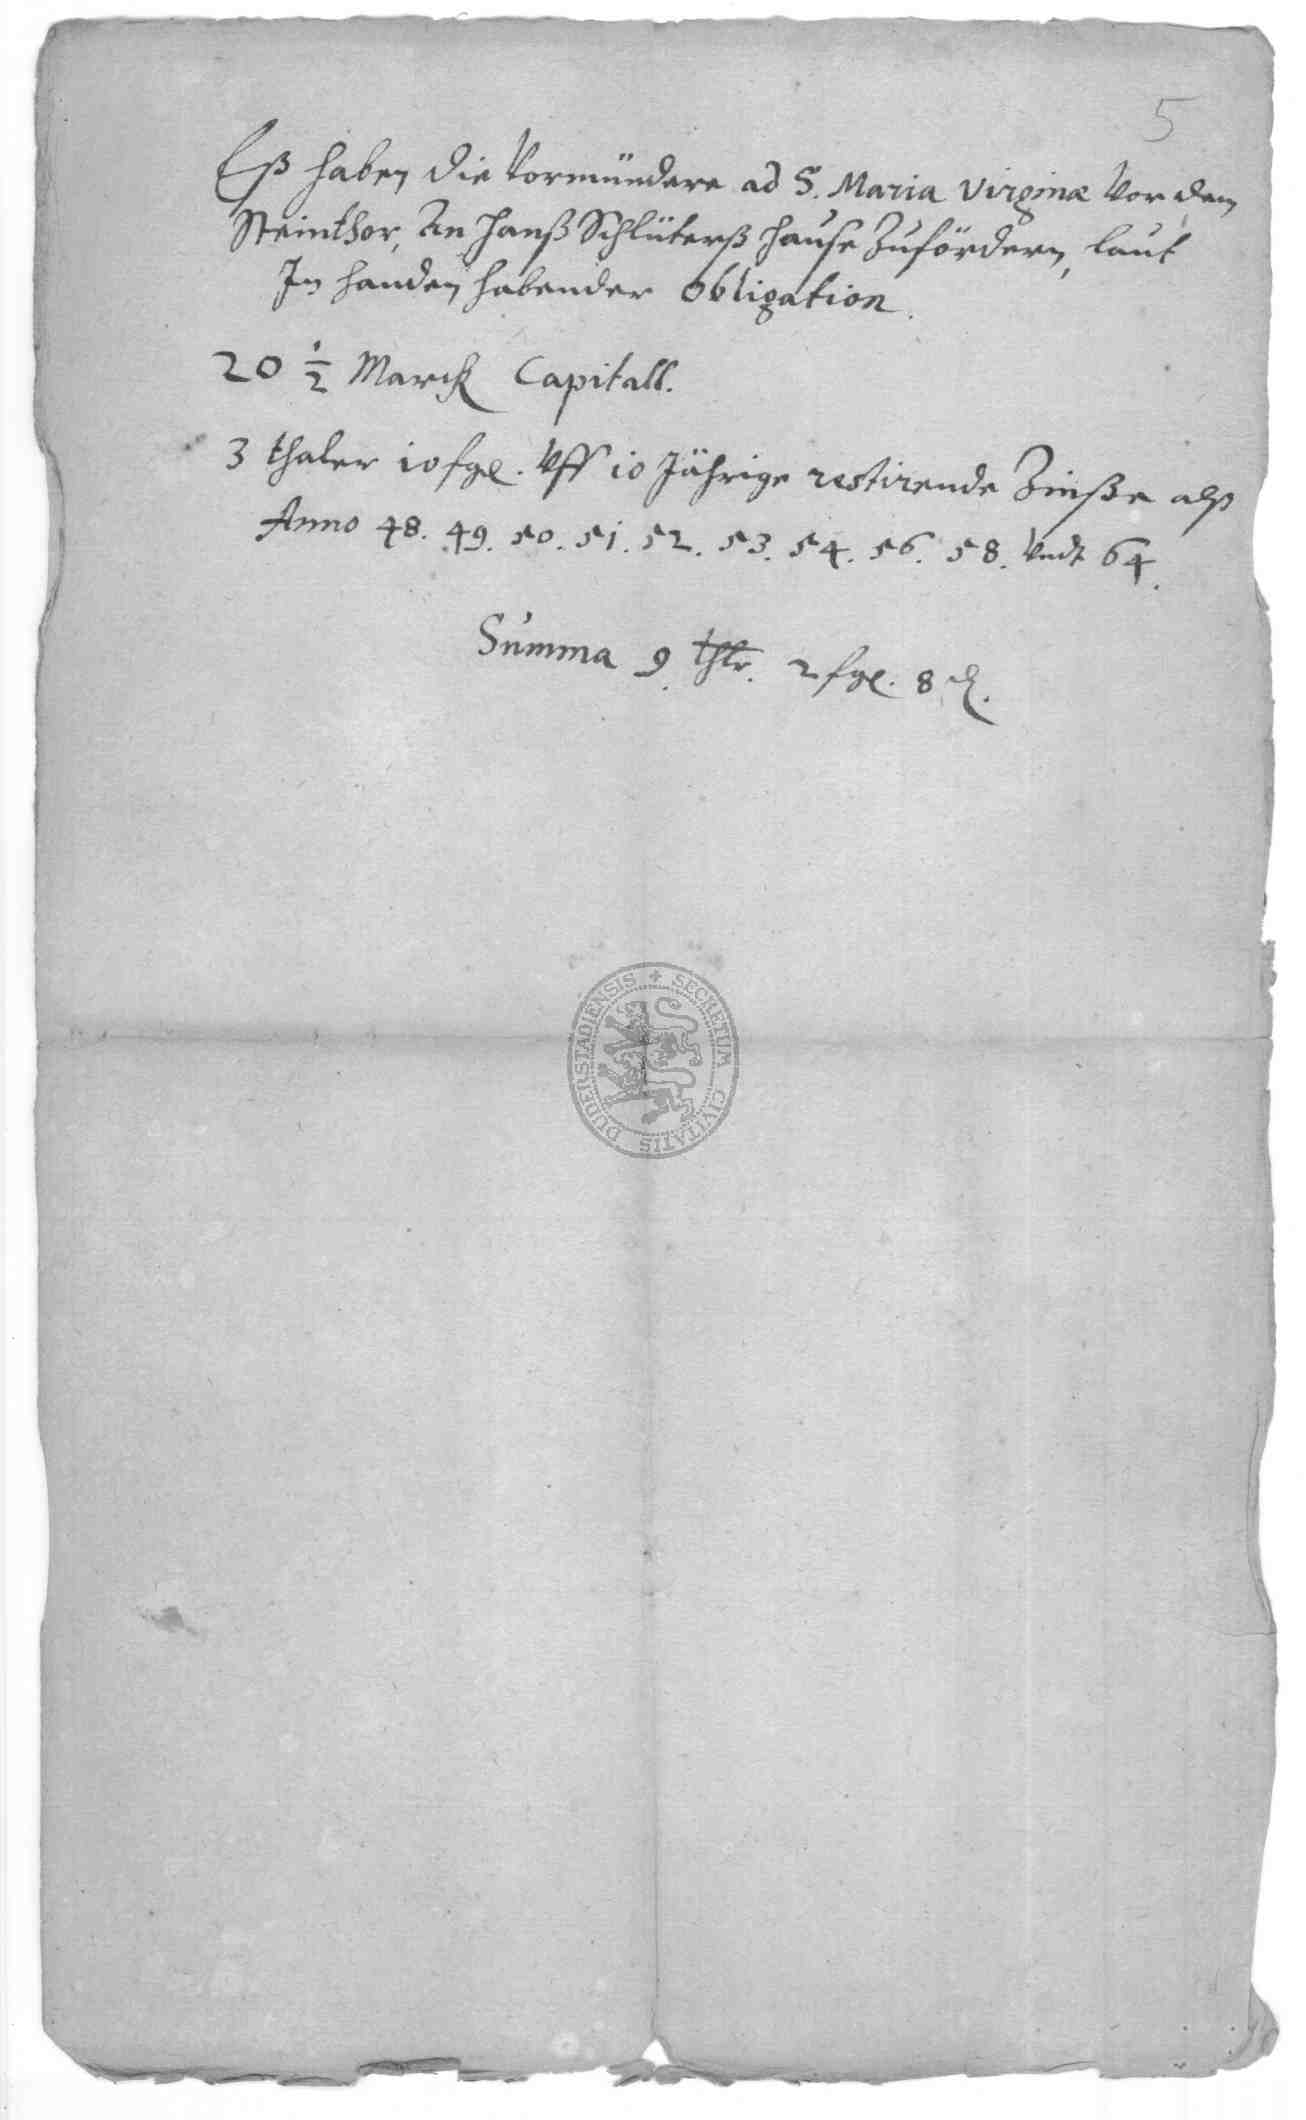 5
Eß haben die Vormündere ad S. Maria Virginæ Vor dem
Steinthor, An Hanß Schlüterß Hause Zufördern, laut
In handen habender Obligation.
20 1/2 Marck Capitall.
3 thaler 10 sgl. Vff 10 Jährige restirende Zinße alß
Anno 48. 49. 50. 51. 52. 53. 54. 56. 58. Vndt 64.
Summa 9. thlr. 2 sgl. 8 ₰.
SECRETUM CIVITATIS DUDERSTADIENSIS